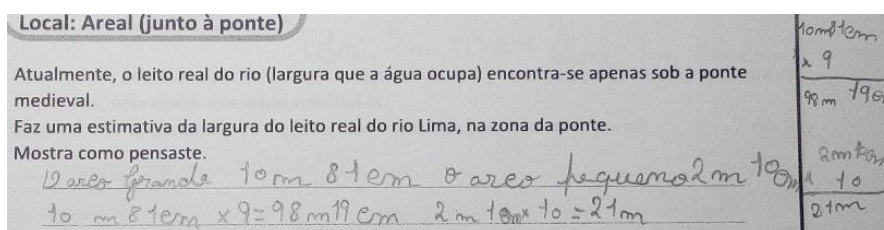 Local: Areal (junto à ponte)
Atualmente, o leito real do rio (largura que a água ocupa) encontra-se apenas sob a ponte
medieval.
Faz uma estimativa da largura do leito real do rio Lima, na zona da ponte.
Mostra como pensaste.
O arco grande 10 m 81cm o arco pequeno 2m 10cm
10 m 81cm x 9 = 98 m 19 cm 2 m 10cm x 10 = 21m
10m81cm
x 9
98m 19
2m10cm
x 10
21m